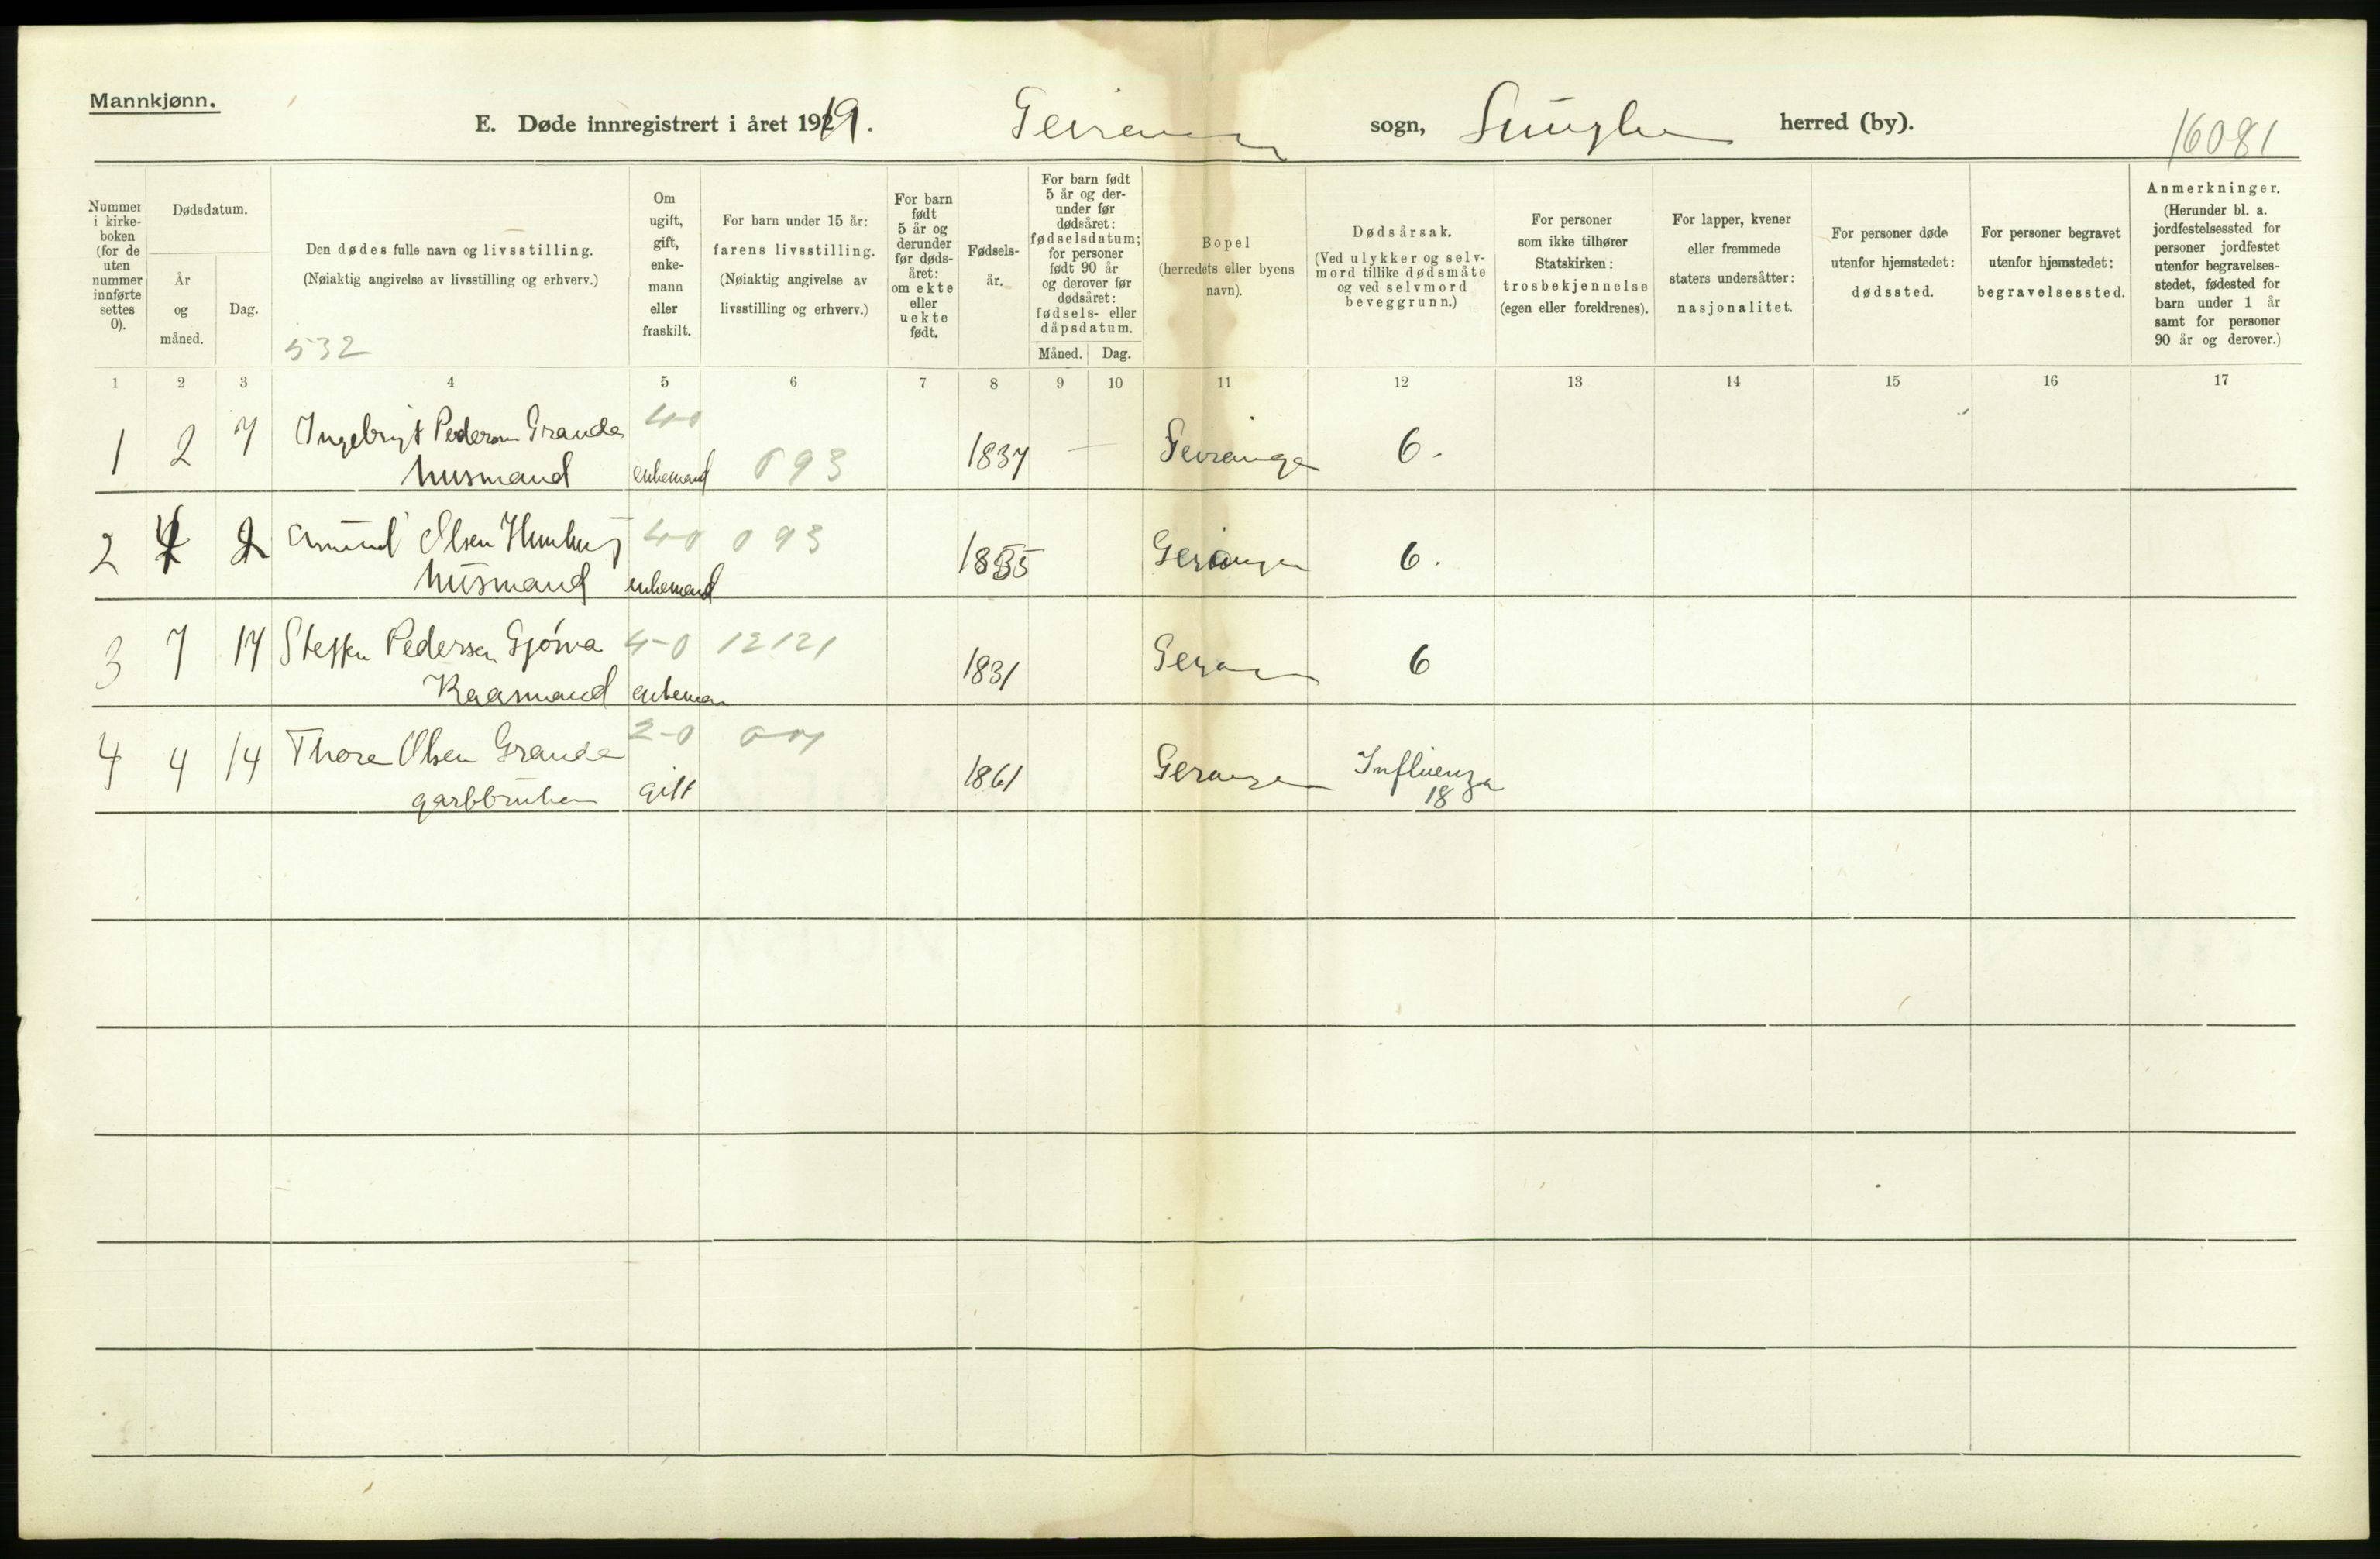 Mannkjønn.
E. Døde innregistrert i året 1919. Geiranger sogn, herred (by).
16081
Nummer i kirke- boken (for de uten nummer innførte settes 0).
Dødsdatum.
År og måned.
Dag.
Den dødes fulle navn og livsstilling.
(Nøiaktig angivelse av livsstilling og erhverv.)
532
Om ugift, gift, enke- mann eller fraskilt.
For barn under 15 år:
farens livsstilling.
(Nøiaktig angivelse av
livsstilling og erhverv.)
For barn født 5 år og derunder før døds- året: om ekte eller uekte født.
Fødsels- år.
For barn født 5 år og der- under før dødsåret: fødselsdatum; for personer født 90 år og derover før dødsåret: fødsels- eller dåpsdatum.
Måned. Dag.
Bopel
(herredets eller byens
navn).
Dødsårsak.
(Ved ulykker og selv-
mord tillike dødsmåte
og ved selvmord
beveggrunn.)
For personer
som ikke tilhører
Statskirken:
trosbekjennelse
(egen eller foreldrenes).
For lapper, kvener
eller fremmede
staters undersåtter:
nasjonalitet.
For personer døde
utenfor hjemstedet:
dødssted.
For personer begravet
utenfor hjemstedet:
begravelsessted.
Anmerkninger.
(Herunder bl. a.
jordfestelsessted for
personer jordfestet
utenfor begravelses-
stedet, fødested for
barn under 1 år
samt for personer
90 år og derover.)
1 2 3 4 5 6 7 8 9 10 11 12 13 14 15 16 17
1 2 7 Ingebrigt Pedersen Grande 40
husmand enkemand 093 1837 — Geiranger 6.
2 4 2 Amund Olsen 40 093
husmand enkemand 1835 Geiranger 6.
3 7 17 Steffen Pedersen Gjørva 40 12121
Kaarmand enkeman 1831 Geiranger 6
4 4 14 Thore Olsen Grande 20 001
garbbruker gift 1861 Geiranger Influenza
18